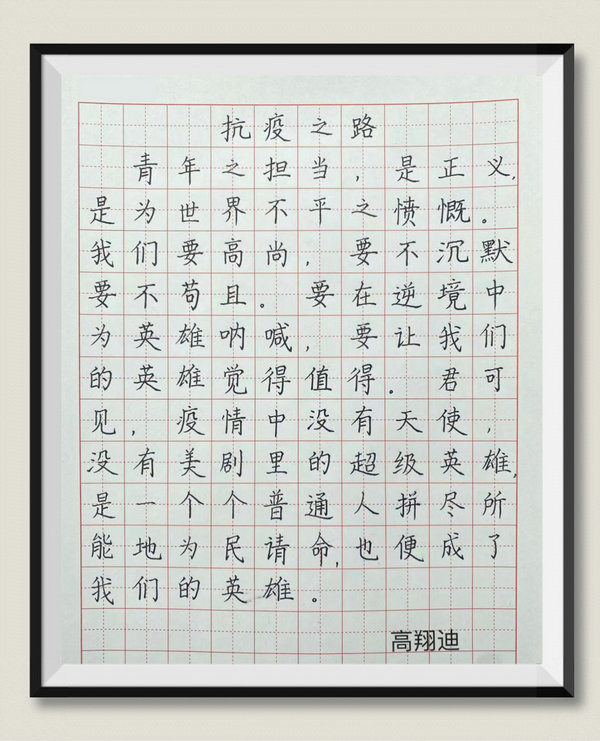 抗疫之路
青年之担当，是正义，
是为世界不平之愤慨。
我们要高尚，要不沉默
要不苟且。要在逆境中
为英雄呐喊，要让我们
的英雄觉得值得。君可
见，疫情中没有天使，
没有美剧里的超级英雄，
是一个个普通人拼尽所
能地为民请命，也便成了
我们的英雄。
高翔迪